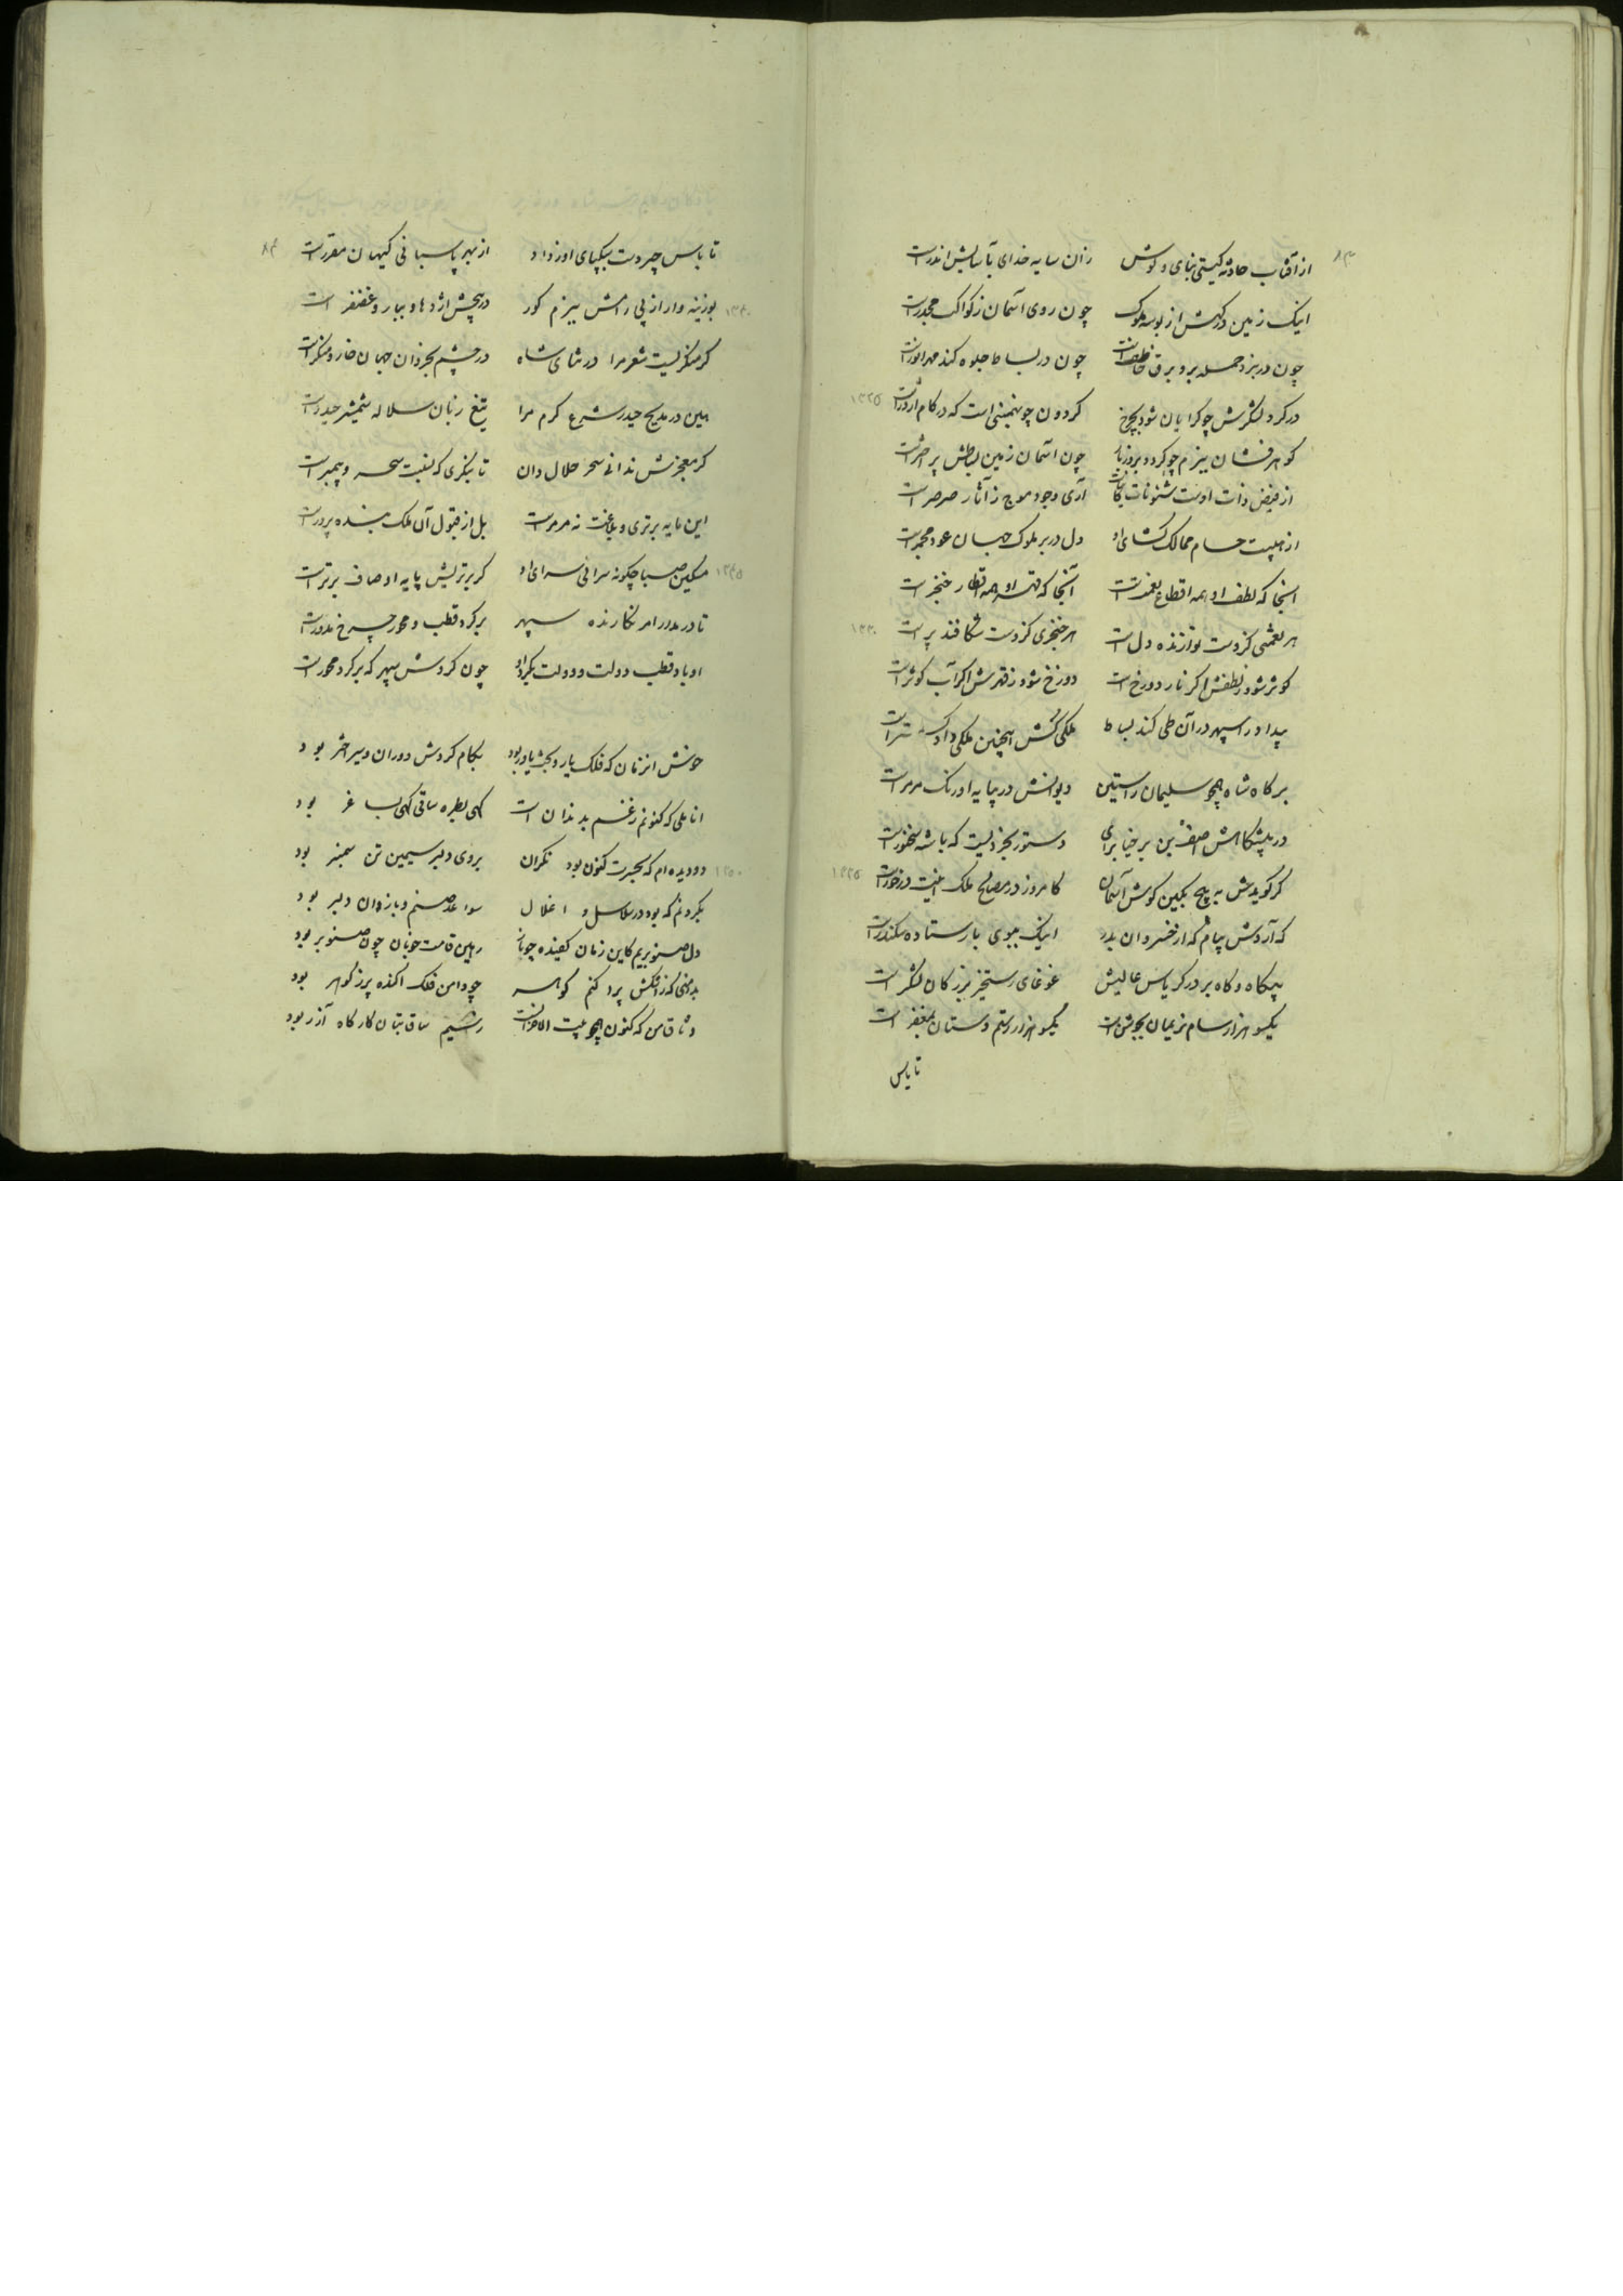 از آفتاب حادثه گیتی بنای و کوش زان سایه خدای بآسایش اندر است
اینک زمین درگهش از بوسه ملوک چون روی آسمان ز کواکب مجدر است
چون در نبرد حمله برد برق خاطف است چون در بساط جلوه کند مهر انور است
در کرد لشکرش چو کرایان شود بچرخ کردون چو بهمنی است که در کام اژدر است
کوهر فشان ببزم چو کردد بروز بار چون آسمان زمین بساطش پر اختر است
از فیض ذات اوست شئونات کاینات آری وجود موج ز آثار صرصر است
از هیبت حسام ممالک کشای او دل در بر ملوک جهان عود مجمر است
آنجا که لطف او همه اقطاع نعمت است آنجا که قهر او همه اقطار خنجر است
هر نعمتی کزوست نوازنده دل است هر خنجری کزوست شکافنده بر است
کوثر شود ز لطفش اگر نار دوزخ است دوزخ شود ز قهرش اگر آب کوثر است
پیدا در سپهر در آن طی کند بساط ملکی کش اینچنین ملکی دادگستر است
بر گاه شاه همچو سلیمان راستین دیوانش در چپایه اورنگ مرمر است
در پیشگاهش آصف بن برخیا برای دستور بخردیست که باشه سخنور است
کر گویدش به پیچ بکین گوش آسمان کامروز در مصالح ملک اینت درخور است
که آردش پیام که از خسروان بدر اینک ببوی بار ستاده سکندر است
بیگاه و گاه بر در کریاس عالیش غوغای رستخیز بزرگان لشکر است
یکسو هزار سام نریمان بجوشن است یکسو هزار رستم دستان بمغفر است
تا پاس
تا پاس چیردست بیکپای اوز داد از بهر پاسبانی کیهان مقرر است
بوزینه وار از پی رامش ببزم کور در پیچش اژدها و ببار و غضنفر است
گر منکریست شعر مرا در ثنای شاه در چشم بخردان جهان خار و منکر است
بین در مدیح حیدر شرع کرم مرا تیغ زبان سلاله شمشیر حیدر است
گر معجزش ندانی سحر حلال دان تا بنگری که نسبت سحر و پیمبر است
این مایه برتری و بلاغت نه مر مراست بل از قبول آن ملک بنده پرور است
مسکین صبا چگونه سرائی سرای او کز برتریش پایه اوصاف برتر است
تا در مدور امر نگارنده سپهر بر گرد قطب و محور چرخ مدور است
او باد قطب دولت و دولت بگرد او چون گردش سپهر که بر گرد محور است
خوش آنزمان که فلک یار و بخت یاور بود بکام گردش دوران و سیر اختر بود
اناملی که کنونم ز غم بدندان است گهی بطره ساقی گهی بساغر بود
دو دیده ام که بحیرت کنون بود نگران بروی دلبر سیمین تن سمنبر بود
بگردنم که بود در سلاسل و اغلال سواعد صنم و بازوان دلبر بود
دل صنوبریم کاین زمان کفیده چو نار رهین قامت خوبان چون صنوبر بود
بدامنی که ز اشکش پر کنم گوهر چو دامن فلک آکنده پر ز گوهر بود
وثاق من که کنون همچو بیت الاحزانست رشیم ساق بتان کارگاه آزر بود
۸۳
۸۴
۱۳۲۵
۱۳۳۰
۱۳۳۵
۱۳۴۰
۱۳۴۵
۱۳۵۰